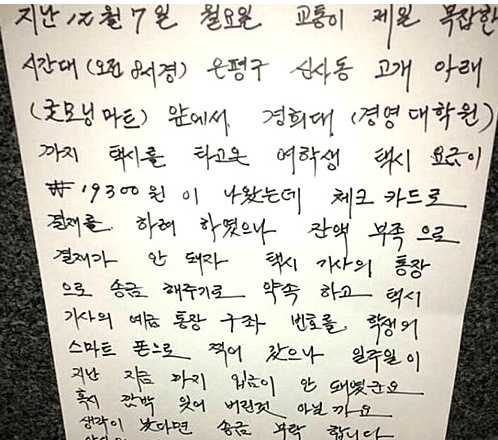 지난 12월 7일 월요일 교통이 제일 복잡한
시간대 (오전 8시경) 은평구 신사동 고개 아래
(굿모닝마트) 앞에서 경희대 (경영대학원)
까지 택시를 타고온 여학생 택시 요금이
₩ 19300원 이 나왔는데 체크 카드로
결재를 하려 하였으나 잔액 부족 으로
결재가 안 돼자 택시 기사의 통장
으로 송금 해주기로 약속 하고 택시
기사의 예금 통장 구좌 번호를 학생의
스마트 폰으로 적어 갔으나 일주일이
지난 지금 까지 입금이 안 돼었군요
혹시 깜박 잊어 버린것 아닐까요
생각이 났다면 송금 부탁 합니다